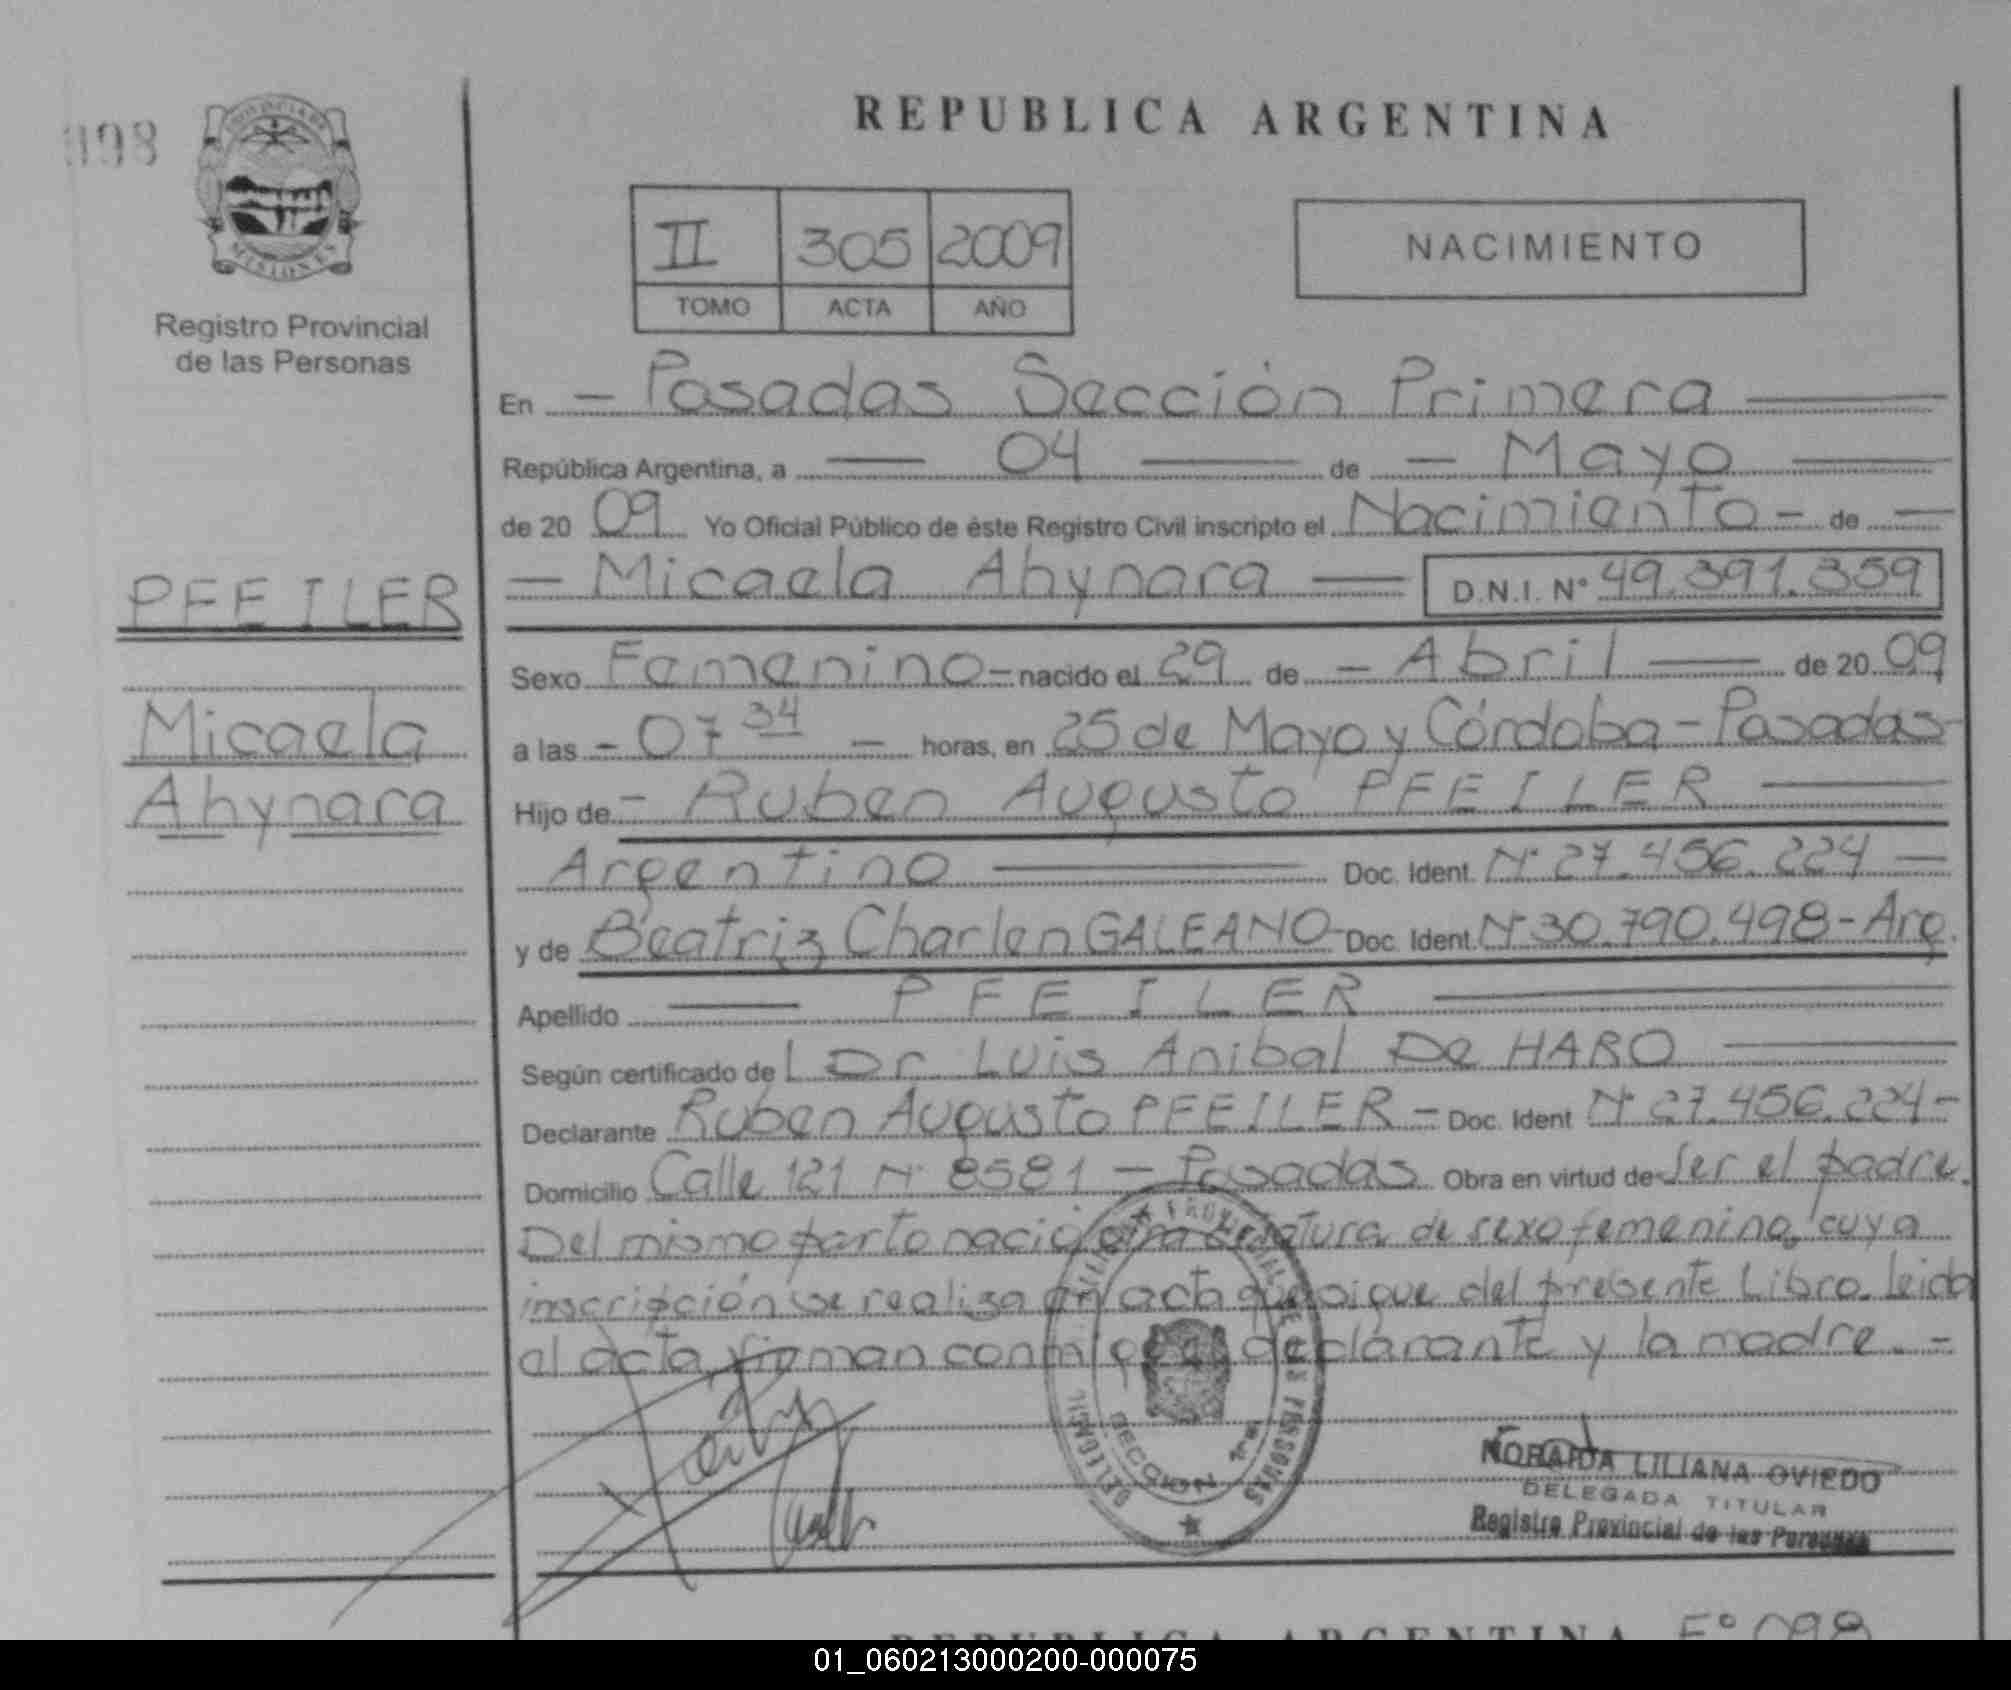 098
PROVINCIA DE
MISIONES
Registro Provincial
de las Personas
REPUBLICA ARGENTINA
II 305 2009
TOMO ACTA AÑO
NACIMIENTO
En - Posadas Sección Primera
República Argentina, a 04 de - Mayo
de 20 09 Yo Oficial Público de éste Registro Civil inscripto el Nacimiento - de -
- Micaela Ahynara - D.N.I. Nº 49.391.359
PFEILER
Micaela
Ahynara
Sexo Femenino - nacido el 29 de - Abril - de 20 09
a las - 07 34 - horas, en 25 de Mayo y Córdoba - Posadas -
Hijo de - Ruben Augusto PFEILER
Argentino Doc. Ident. Nº 27.456.224 -
y de Beatriz Charlen GALEANO - Doc. Ident. Nº 30.790.498 - Arg.
Apellido PFEILER
Según certificado de Dr. Luis Anibal De HARO
Declarante Ruben Augusto PFEILER - Doc. Ident Nº 27.456.224 -
Domicilio Calle 121 Nº 8581 - Posadas Obra en virtud de ser el padre.
Del mismo parto nació otra criatura de sexo femenino, cuya
inscripción se realiza en acta que sigue del presente Libro. Leida
el acta, firman conmigo el declarante y la madre. -
SECCION 1ra
NORAIDA LILIANA OVIEDO
DELEGADA TITULAR
Registro Provincial de las Personas
REPUBLICA ARGENTINA Fº 098
01_060213000200-000075